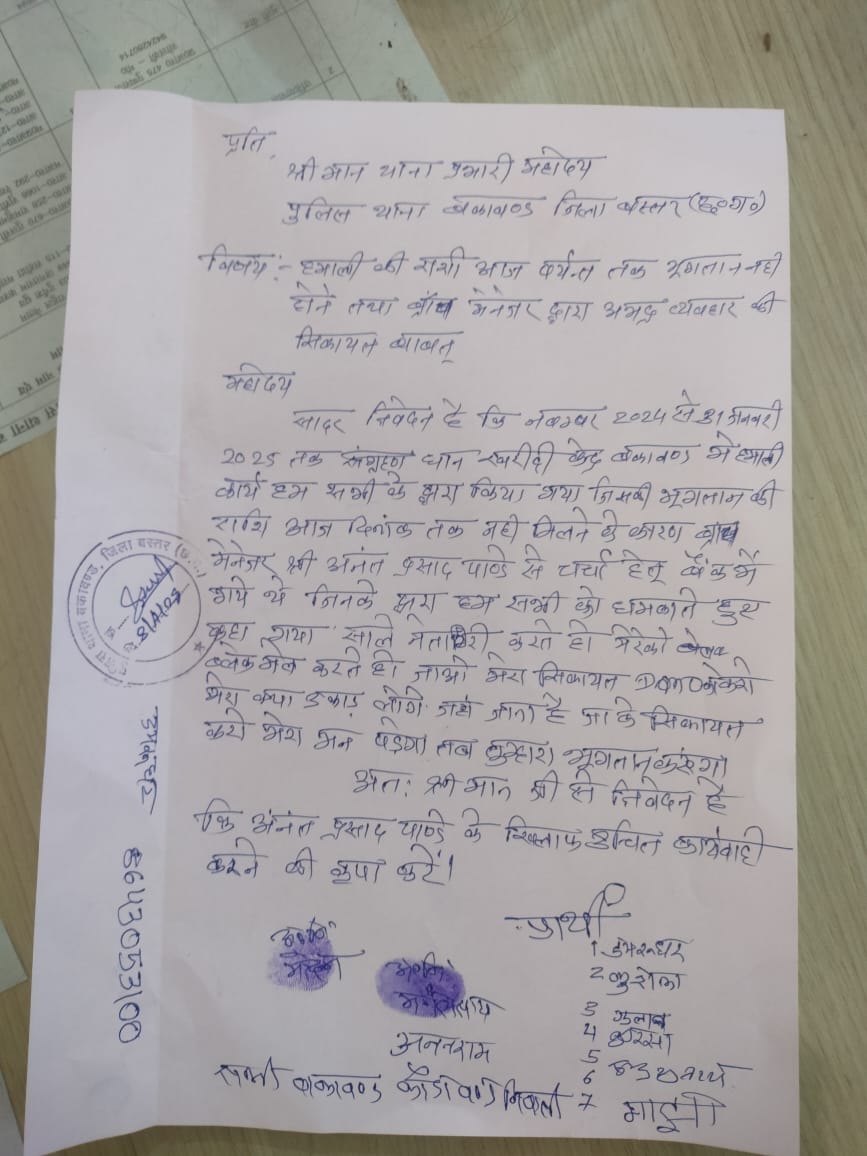 प्रति,
श्री मान थाना प्रभारी महोदय
पुलिस थाना बकावण्ड जिला बस्तर (छ०ग०)
विषय :- हमाली की राशी आज पर्यन्त तक भूगतान नही
होने तथा ब्रांच मेनेजर द्वारा अभद्र व्यवहार की
सिकायत बाबत्
महोदय
सादर निवेदन है कि नवम्बर 2024 से 31 जनवरी
2025 तक संग्रहण धान खरीदी केन्द्र बकावण्ड मे हमाली
कार्य हम सभी के द्वारा किया गया जिसकी भूगतान की
राशि आज दिनांक तक नही मिलने के कारण ब्रांच
मेनेजर श्री अनंत प्रसाद पाण्डे से चर्चा हेतू बैंक में
गये थे जिनके द्वारा हम सभी को धमकाते हुए
कहा गया साले नेतागिरी करते हो मेरेको
ब्लेकमेल करते हो जाओ मेरा सिकायत करो
मेरा क्या उखाड़ लोगे जहां जाना है जा के सिकायत
करो मेरा मन पड़ेगा तब तुम्हारा भूगतान करूंगा
अतः श्री मान जी से निवेदन है
कि अनंत प्रसाद पाण्डे के खिलाफ उचित कार्यवाही
करने की कृपा करें।
प्रार्थी
1 डमरूधर
2
3 गुलाब
4
5
अनतराम
6
7 माझी
बकावण्ड
पुलिस थाना बकावण्ड, जिला बस्तर (छ.ग.)
डमरूधर 8643053100